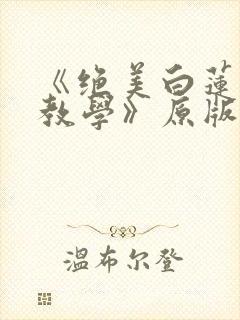 《绝美白蓮
教學》原版
温布尔登